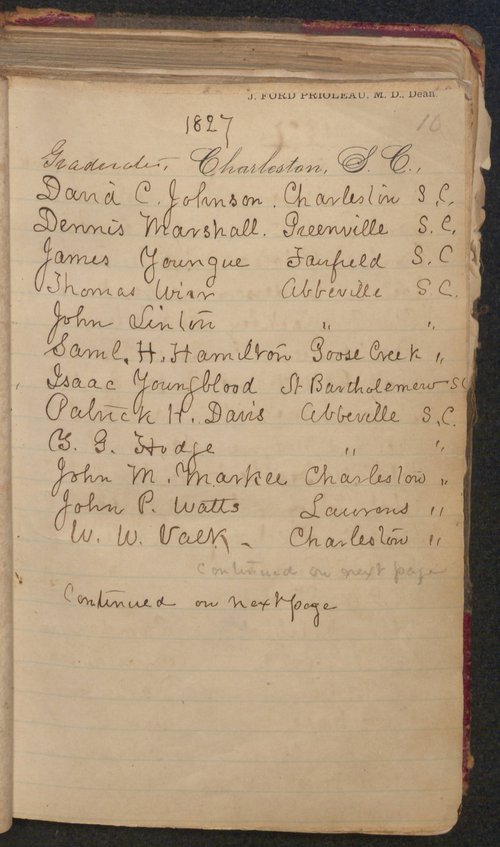 J. FORD PRIOLEAU, M. D., Dean.
1827 10
Graduates, Charleston, S. C.,
David C. Johnson. Charleston S. C.
Dennis Marshall. Greenville S. C.
James Youngue Fairfield S. C
Thomas Winn Abbeville S. C.
John Linton " "
Saml. H. Hamilton Goose Creek "
Isaac Youngblood St Bartholemew SC
Patrick H. Davis Abbeville S. C.
G. Hodge " "
John M. Markee Charleston "
John P. Watts Laurens "
W. W. Valk - Charleston "
continued on next page
Continued on next page